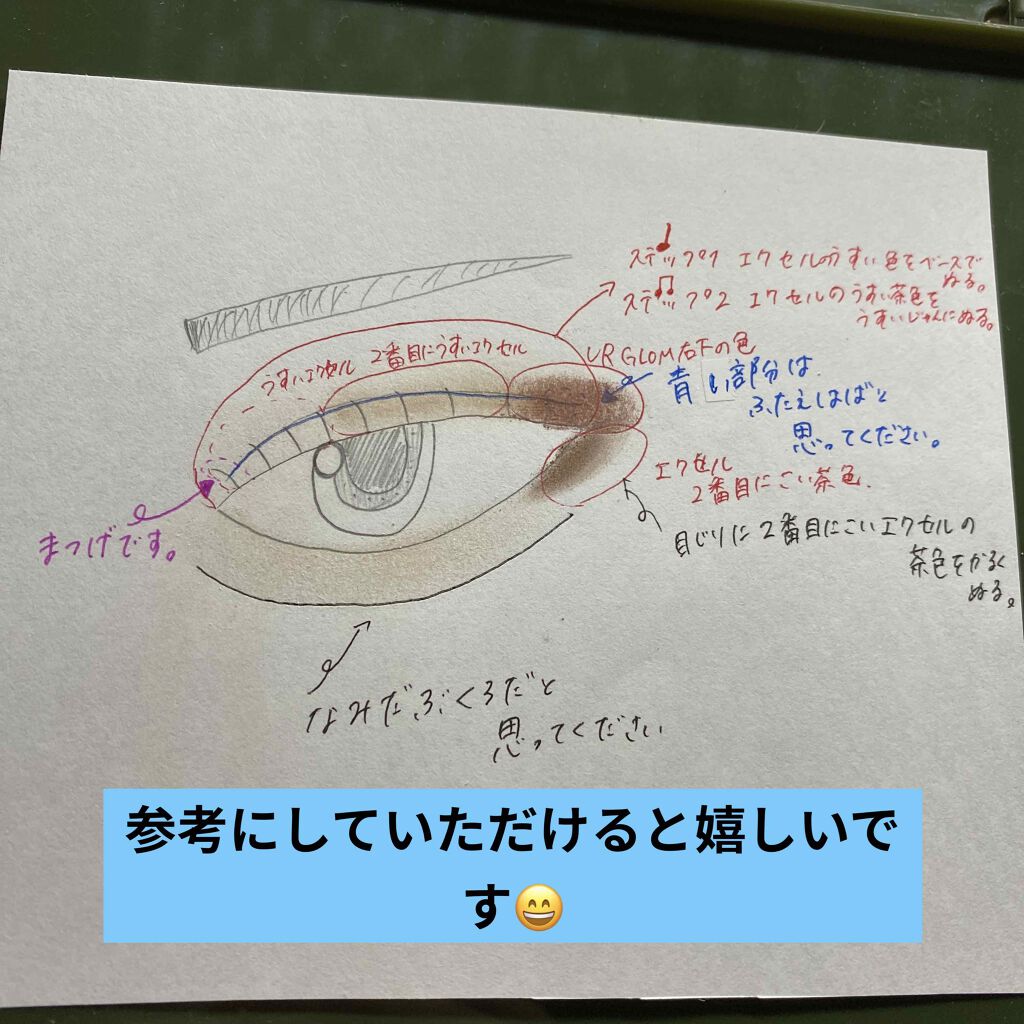 ステップ1 エクセルのうすい色をベースで
ぬる。
ステップ2 エクセルのうすい茶色を
うすいじゃんにぬる。
うすいエクセル
2番目にうすいエクセル
UR GLOM右下の色
青い部分は
ふたえはばと
思ってください。
エクセル
2番目にこい茶色.
目じりに2番目にこいエクセルの
茶色をかるく
ぬる。
まつげです。
なみだぶくろだと
思ってください
参考にしていただけると嬉しいで
す😄